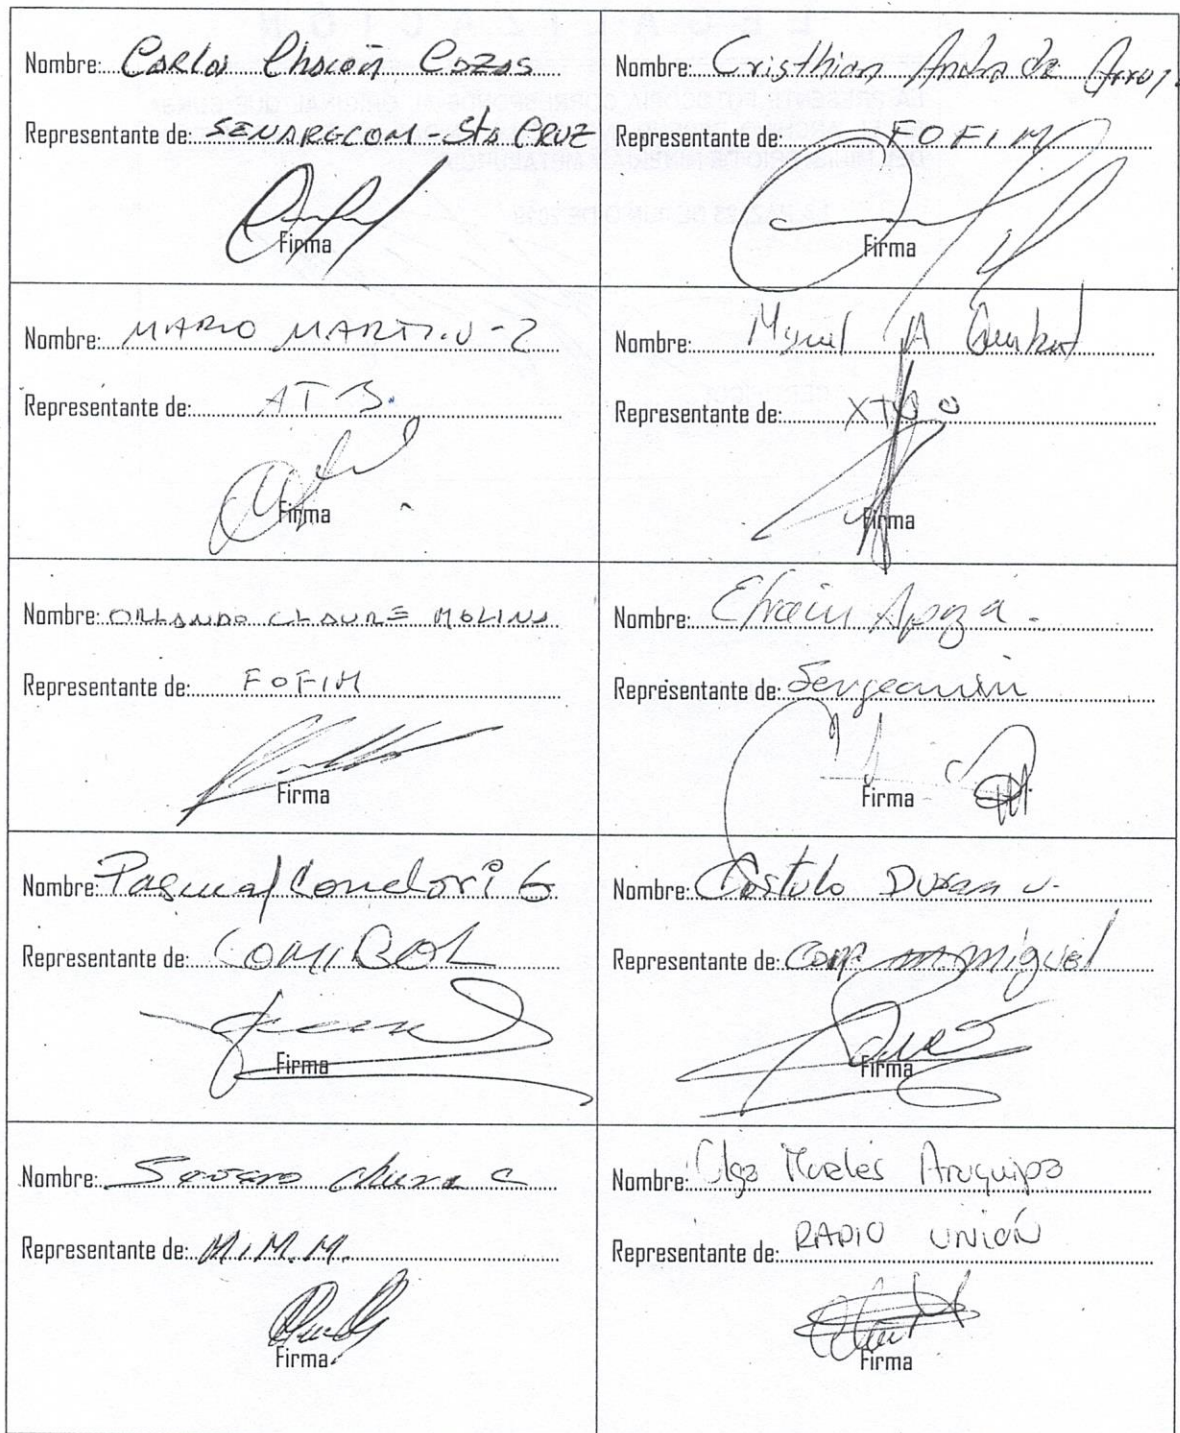 Nombre: Carlos Chacón Cozas
Representante de: SENARECOM - Sta CRUZ
Firma
Nombre: Cristhian Andrade Arroy.
Representante de: FOFIM
Firma
Nombre: MARIO MARTINEZ
Representante de: ATB.
Firma
Nombre: Miguel A
Representante de:
Firma
Nombre: ORLANDO CLAURE MOLINA
Representante de: FOFIM
Firma
Nombre: Efraín Apaza.
Representante de: Sergeomin
Firma
Nombre: Pascual Condori G
Representante de: COMIBOL
Firma
Nombre: Castulo Duran V.
Representante de: Coop. miguel
Firma
Nombre: Severo Chura C
Representante de: M.M.M.
Firma
Nombre: Olga Morales Aruquipa
Representante de: RADIO UNIÓN
Firma